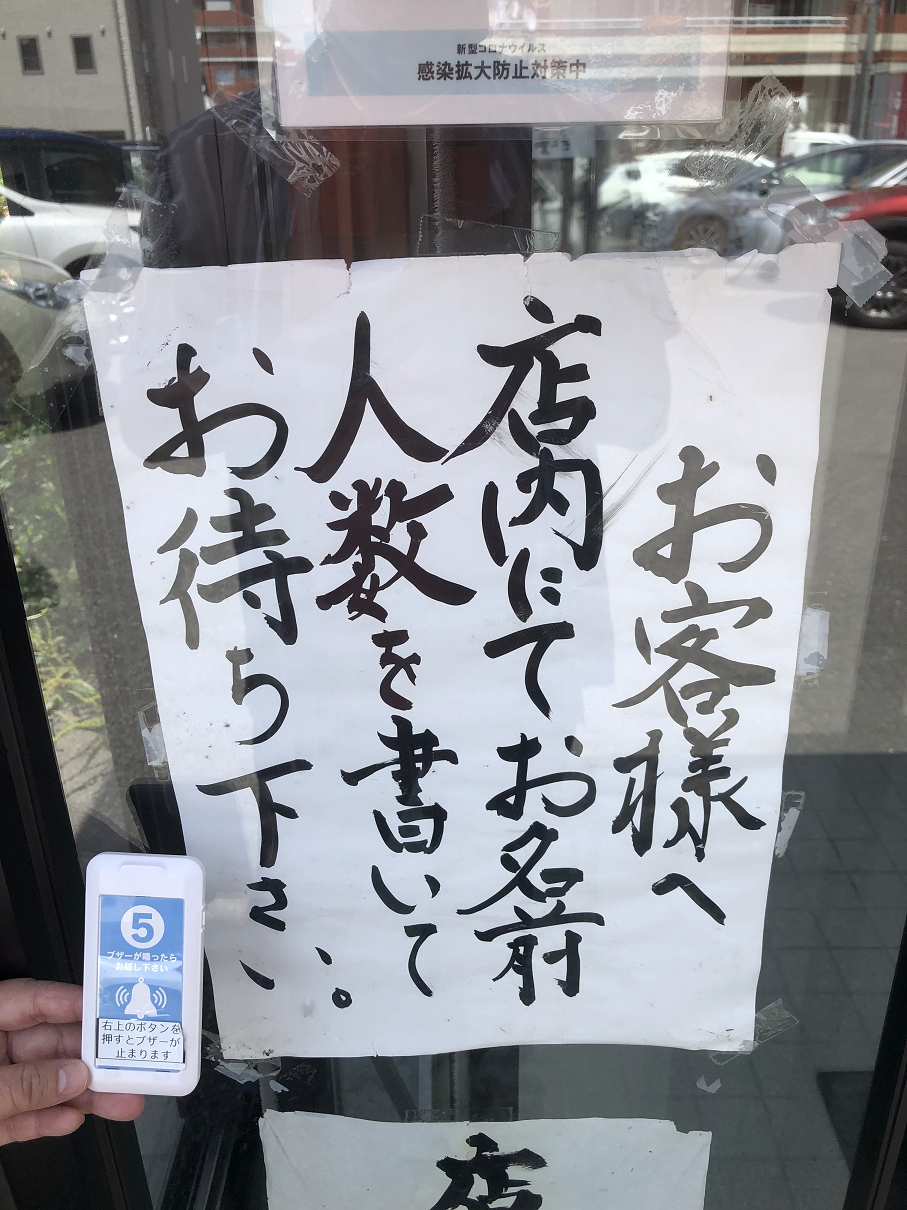 新型コロナウイルス
感染拡大防止対策中
お客様へ
店内にてお名前
人数を書いて
お待ち下さい。
5
ブザーが鳴ったら
お越し下さい
右上のボタンを
押すとブザーが
止まります
店